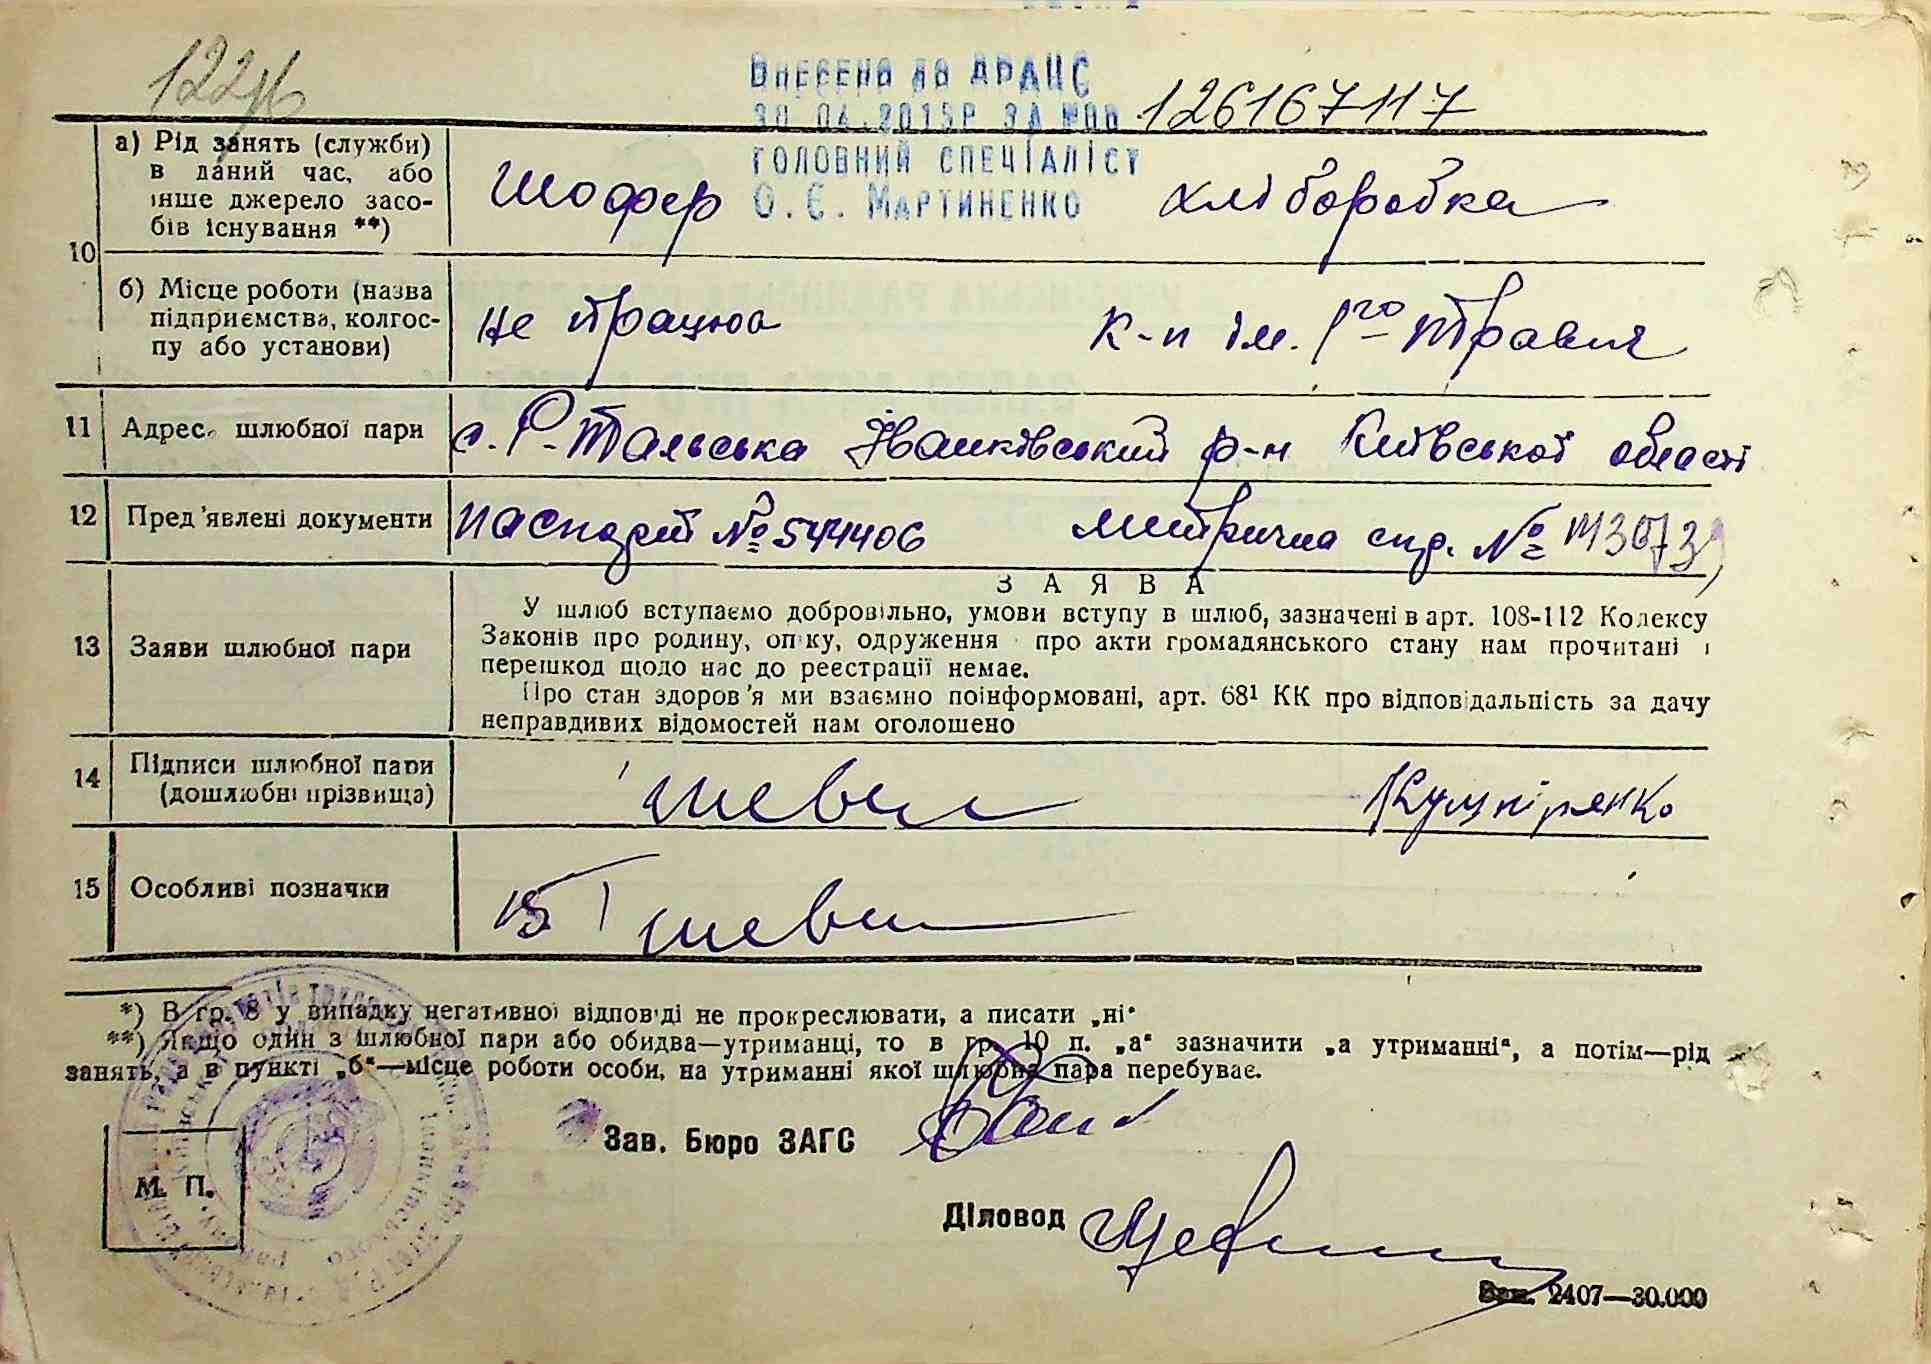 ВНЕСЕНО ДО ДРАЦС
30.04.2013Р ЗА №00 126167117
ГОЛОВНИЙ СПЕЦІАЛІСТ
О.Є. МАРТИНЕНКО
10
а) Рід занять (служби)
в даний час, або
інше джерело засо-
бів існування **)
Шофер хліборобка
б) Місце роботи (назва
підприємства, колгос-
пу або установи)
не працює к-п ім. 1го Травня
11 Адреса шлюбної пари с. Р-Тальська Іванківський р-н Київської області
12 Пред'явлені документи паспорт № 544406 митрична спд. №
13 Заяви шлюбної пари
ЗАЯВА
У шлюб вступаємо добровільно, умови вступу в шлюб, зазначені в арт. 108-112 Кодексу
Законів про родину, опіку, одруження про акти громадянського стану нам прочитані і
перешкод щодо нас до реестрації немає.
Про стан здоров'я ми взаємно поінформовані, арт. 68¹ КК про відповідальність за дачу
неправдивих відомостей нам оголошено
14 Підписи шлюбної пари
(дошлюбні прізвища)
15 Особливі позначки
*) В гр. 8 у випадку негативної відповіді не прокреслювати, а писати „ні“
**) Якщо один з шлюбної пари або обидва—утриманці, то в гр. 10 п. „а“ зазначити „а утриманні“, а потім—рід
занять, а в пункті „б“—місце роботи особи, на утриманні якої шлюбна пара перебуває.
Зав. Бюро ЗАГС
М. П.
Діловод
Зам. 2407—30.000